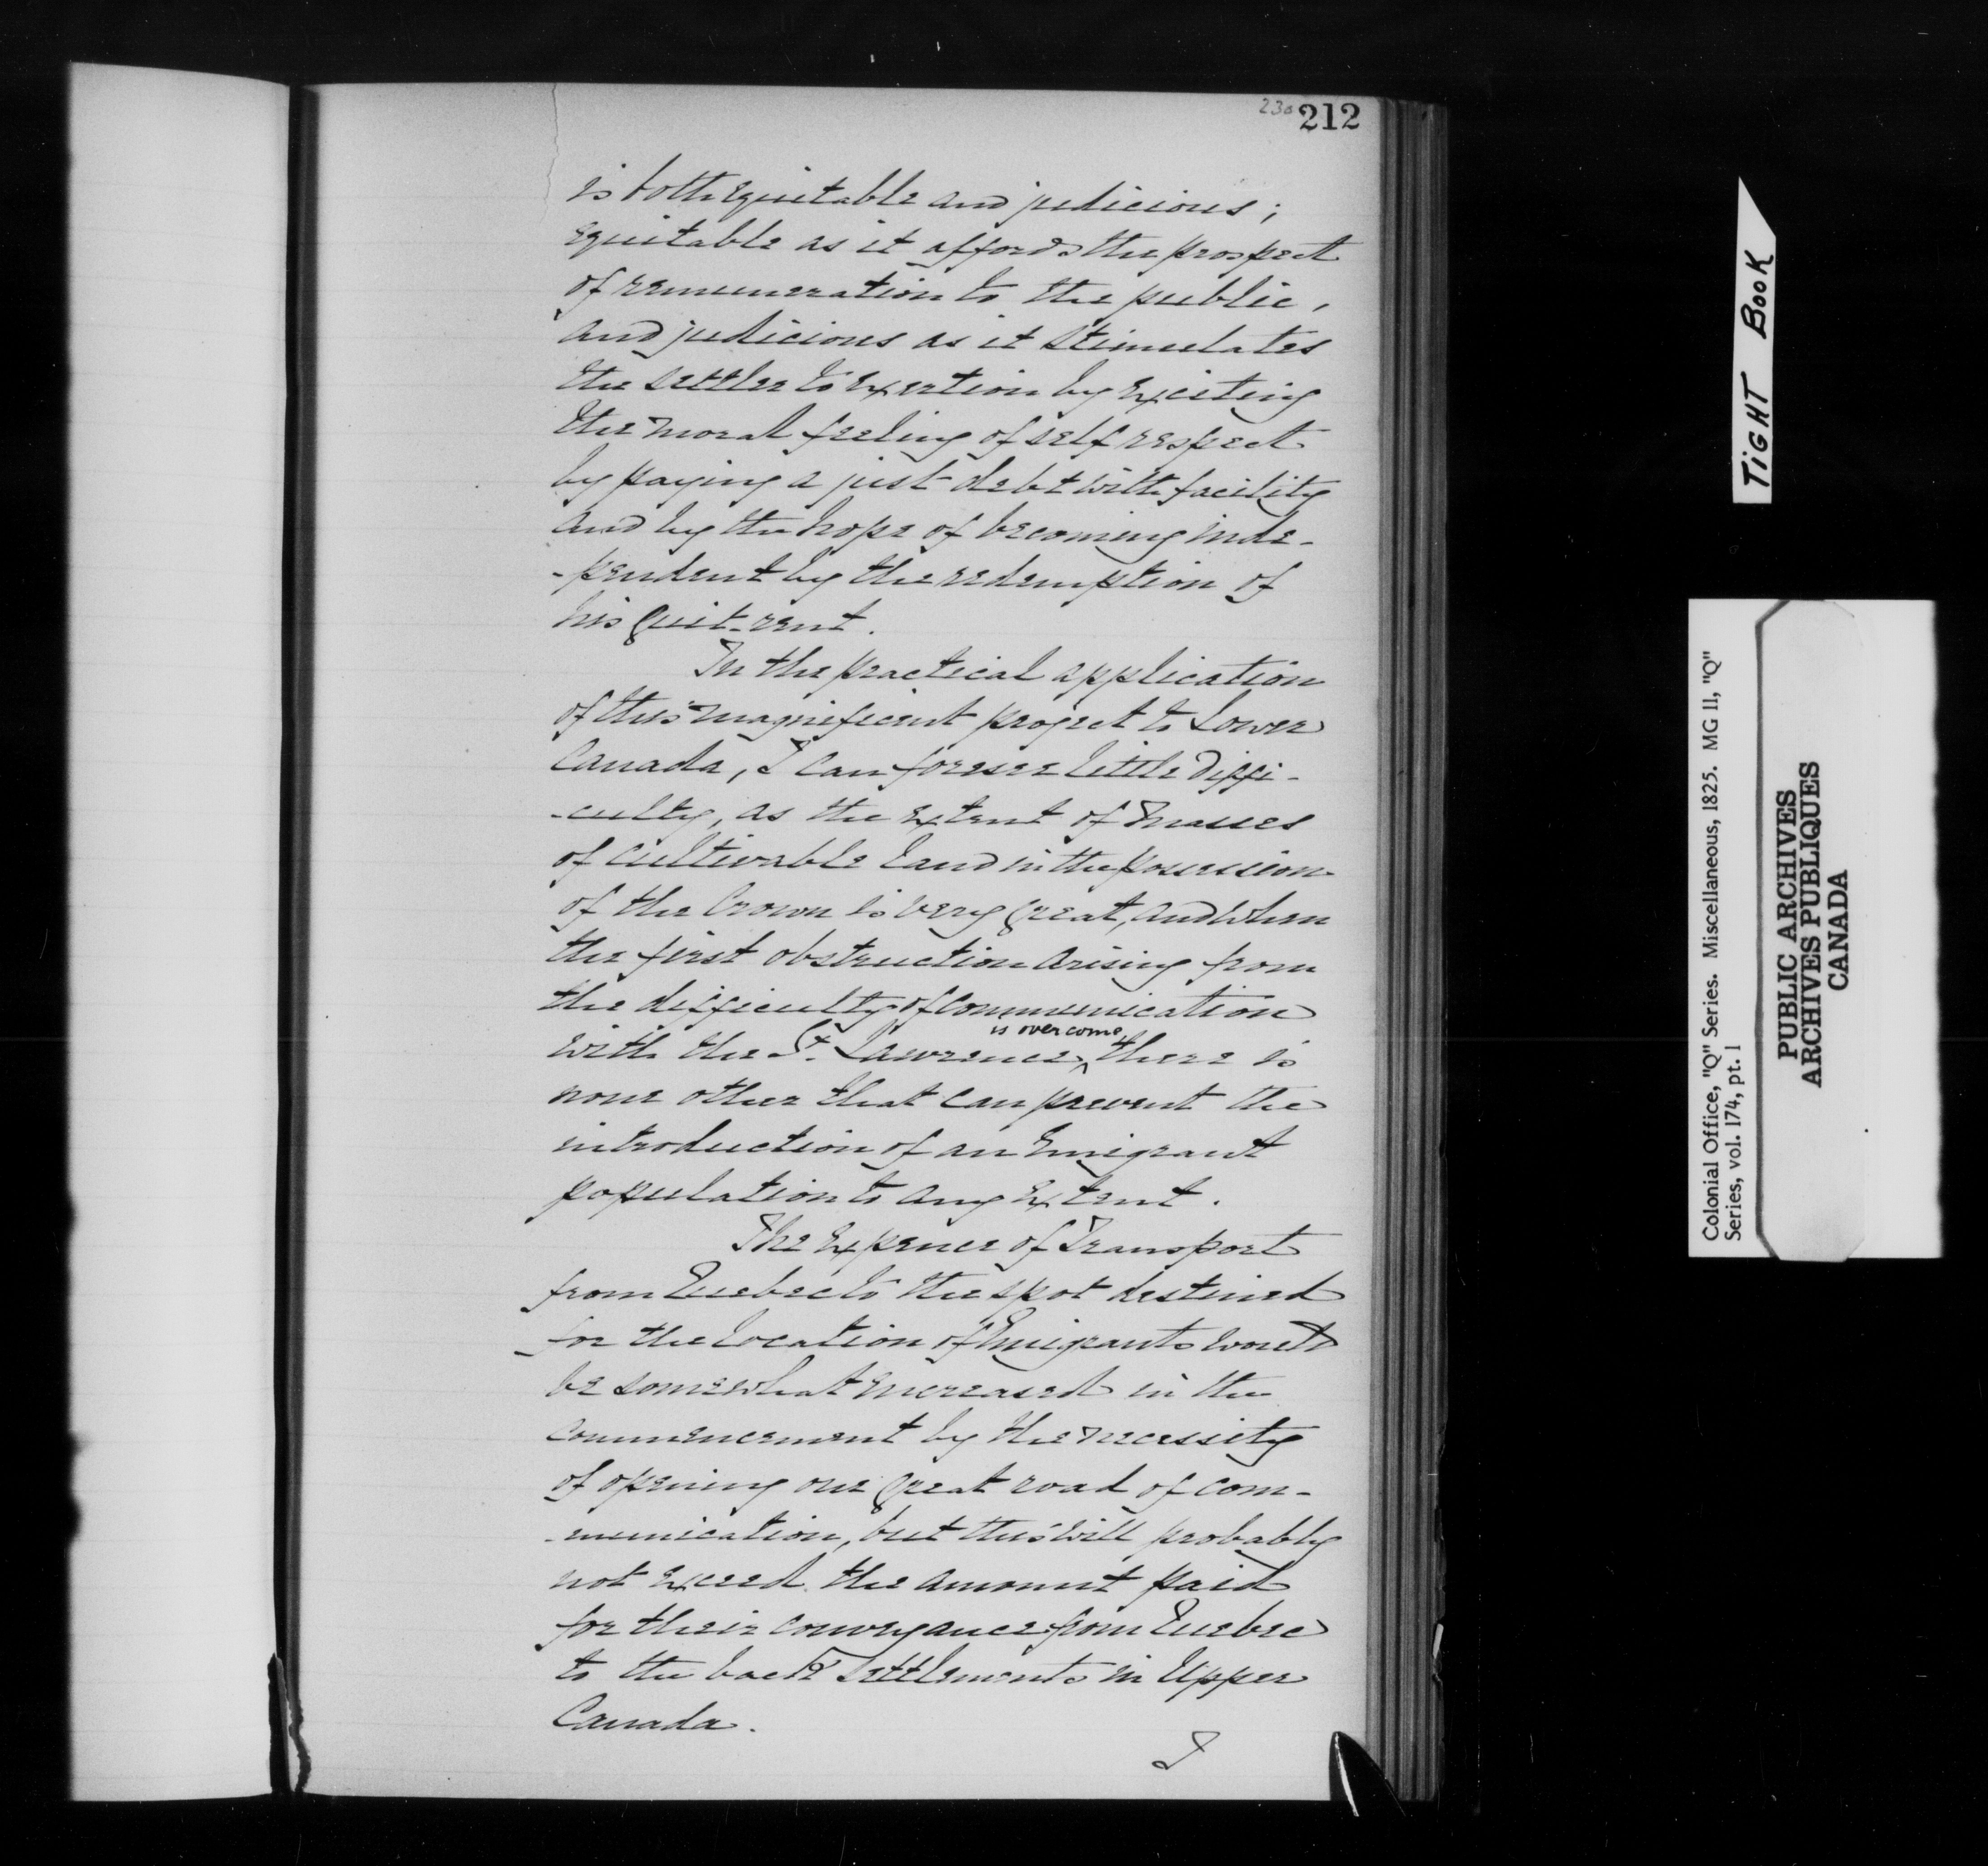 23a 212
is both equitable and judicious;
equitable as it affords the prospect
of remuneration to the public,
and judicious as it stimulates
the settler to exertion by exciting
the moral feeling of self respect
by paying a just debt with facility
and by the hope of becoming inde-
-pendent by the redemption of
his quit-rent.
In the practical application
of this magnificent project to Lower
Canada, I can foresee little diffi-
-culty, as the extent of masses
of cultivable land in the possession
of the Crown is very great, and when
the first obstruction arising from
the difficulty of communication
is overcome
with the St. Lawrence, there is
none other that can prevent the
introduction of an Emigrant
population to any extent.
The Expence of Transport
from Quebec to the spot destined
for the location of Emigrants would
be somewhat increased in the
commencement by the necessity
of opening one great road of com-
-munication, but this will probably
not exceed the amount paid
for their conveyance from Quebec
to the back settlements in Upper
Canada.
I
TIGHT BOOK
Colonial Office, "Q" Series. Miscellaneous, 1825. MG 11, "Q"
Series, vol. 174, pt. 1
PUBLIC ARCHIVES
ARCHIVES PUBLIQUES
CANADA